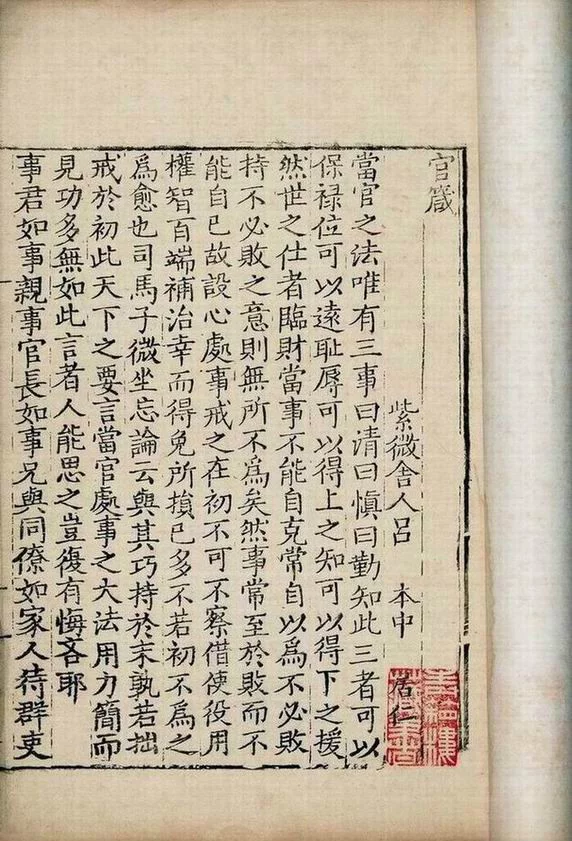 官箴
紫微舍人吕　本中　居仁
當官之法唯有三事曰清曰慎曰勤知此三者可以
保禄位可以遠恥辱可以得上之知可以得下之援
然世之仕者臨財當事不能自克常自以爲不必敗
持不必敗之意則無所不爲矣然事常至於敗而不
能自已故設心處事戒之在初不可不察借使役用
權智百端補治幸而得免所損已多不若初不爲之
爲愈也司馬子微坐忘論云與其巧持於末孰若拙
戒於初此天下之要言當官處事之大法用力簡而
見功多無如此言者人能思之豈復有悔吝耶
事君如事親事官長如事兄與同僚如家人待群吏